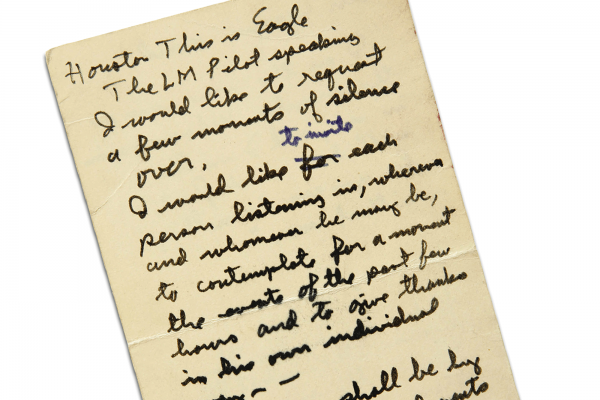 Houston This is Eagle
The LM Pilot speaking
I would like to request
a few moments of silence
over.
to invite
I would like for each
person listening in, wherever
and whomever he may be,
to contemplate for a moment
the events of the past few
hours and to give thanks
in his own individual
shall be by